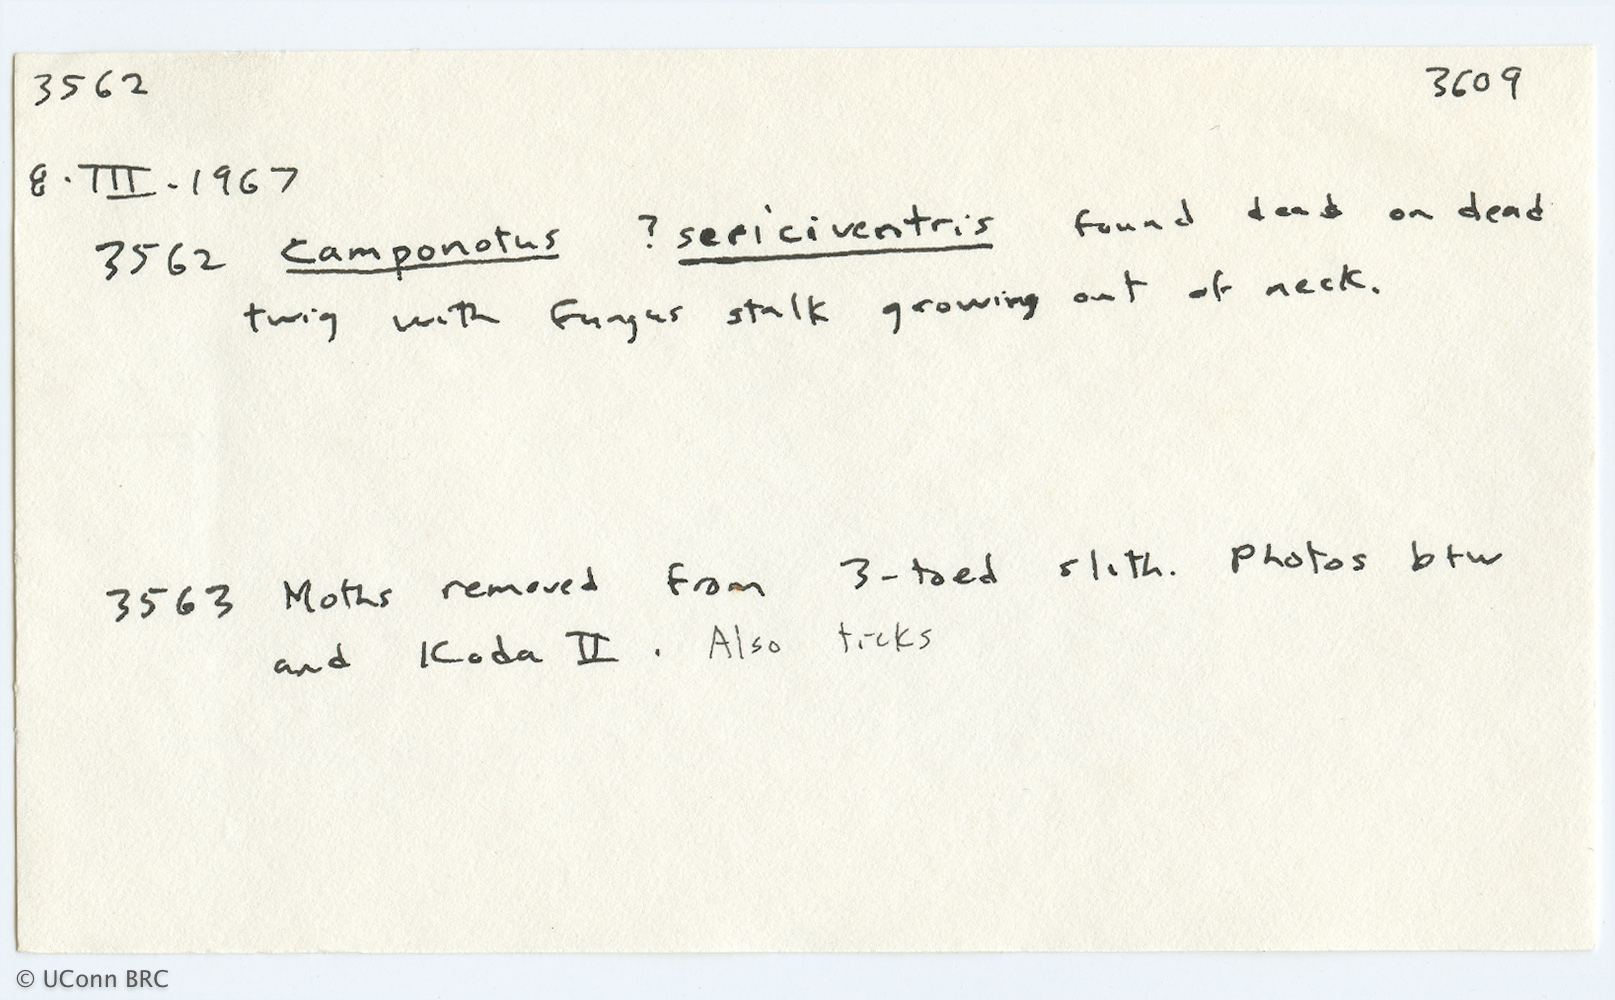 3562 3609
8.III.1967
3562 Camponotus ? sericiventris found dead on dead
twig with fungus stalk growing out of neck.
3563 Moths removed from 3-toed sloth. Photos b+w
and Koda II. Also ticks
© UConn BRC